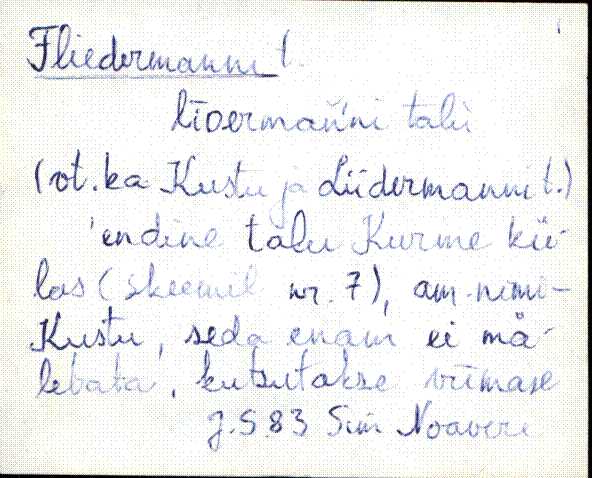 Fliedermanni t.
līdermañ'ni talu
(vt. ka Kustu ja Liidermanni t.)
endine talu Kurme kü-
las (skeemil nr. 7), am. nimi-
Kustu, seda enam ei mä-
letata, kutsutakse viimase
J. S. 83 Simi Noavere